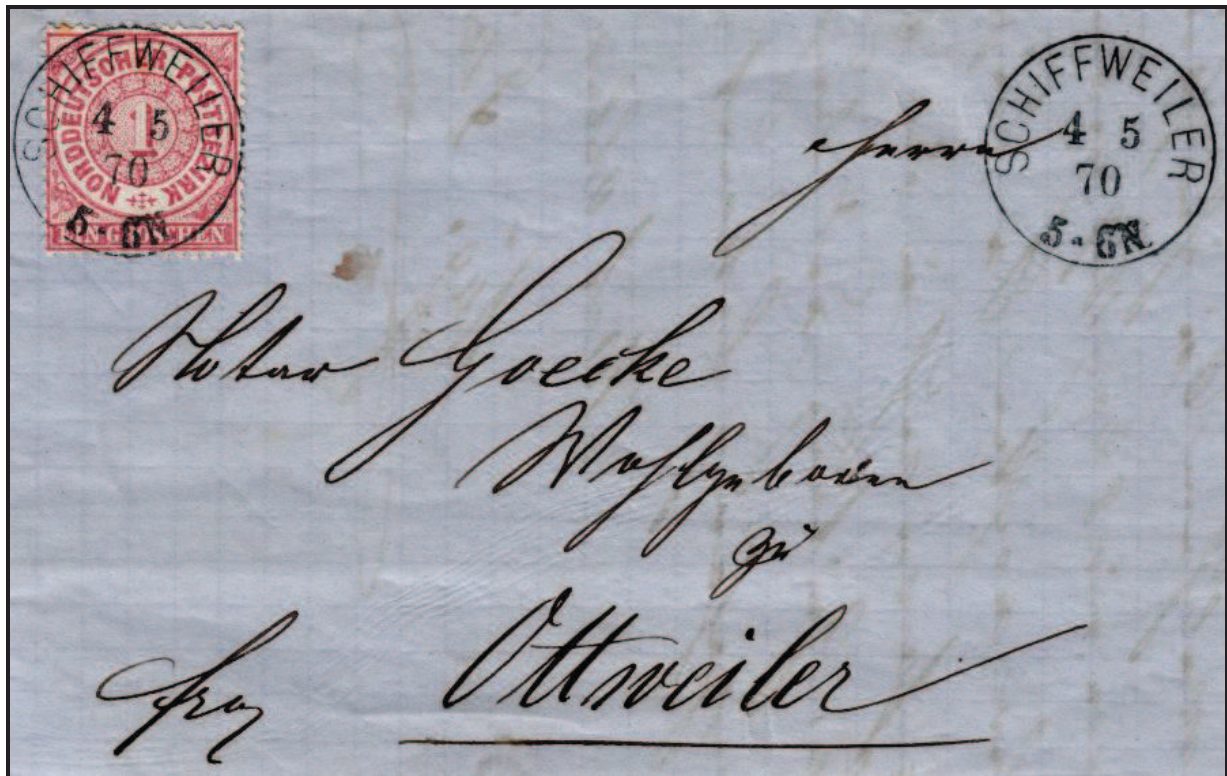 SCHIFFWEILER
4 5
70
5-6N
NORDDEUTSCHER POSTBEZIRK
1
EIN GROSCHEN
SCHIFFWEILER
4 5
70
5-6N
Herrn
Notar Goecke
Wohlgeboren
zu
Ottweiler